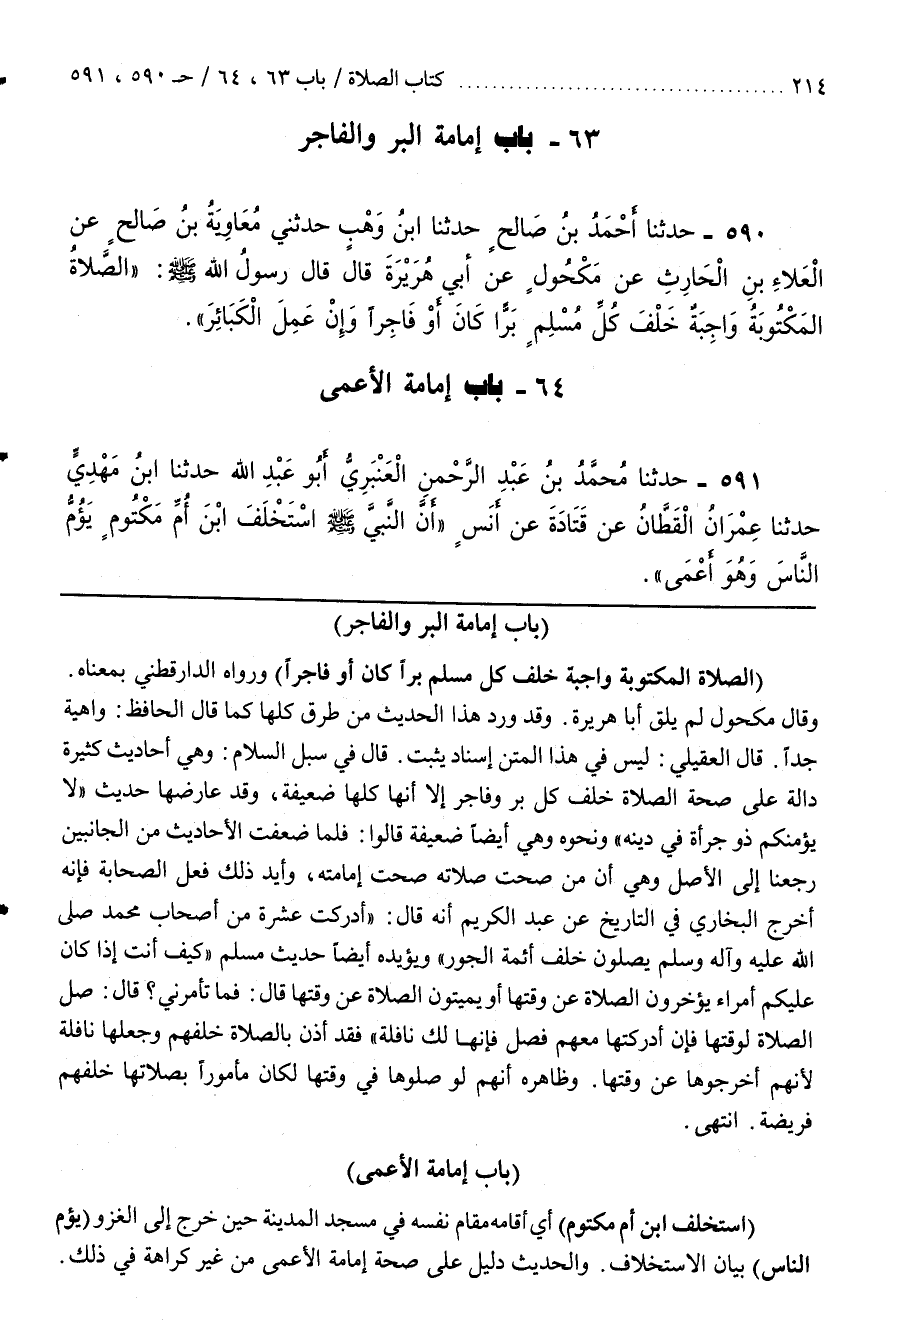 ٢١٤ ........................................ كتاب الصلاة / باب ٦٣ ، ٦٤ / حـ ٥٩٠ ، ٥٩١
٦٣ ـ باب إمامة البر والفاجر
٥٩٠ ـ حدثنا أَحْمَدُ بنُ صَالحٍ حدثنا ابنُ وَهْبٍ حدثني مُعَاوِيَةُ بنُ صَالحٍ عن
الْعَلاءِ بنِ الْحَارِثِ عن مَكْحُولٍ عن أبي هُرَيْرَةَ قال قال رسولُ الله ﷺ: «الصَّلاةُ
المَكْتُوبَةُ وَاجِبَةٌ خَلْفَ كُلِّ مُسْلِمٍ بَرًّا كَانَ أَوْ فَاجِراً وَإِنْ عَمِلَ الْكَبَائِرَ».
٦٤ ـ باب إمامة الأعمى
٥٩١ ـ حدثنا مُحمَّدُ بنُ عَبْدِ الرَّحْمنِ الْعَنْبَرِيُّ أَبُو عَبْدِ الله حدثنا ابنُ مَهْدِيٍّ
حدثنا عِمْرَانُ الْقَطَّانُ عن قَتَادَةَ عن أَنَسٍ «أَنَّ النَّبيَّ ﷺ اسْتَخْلَفَ ابْنَ أُمِّ مَكْتُومٍ يَؤُمُّ
النَّاسَ وَهُوَ أَعْمَى».
(باب إمامة البر والفاجر)
(الصلاة المكتوبة واجبة خلف كل مسلم براً كان أو فاجراً) ورواه الدارقطني بمعناه.
وقال مكحول لم يلق أبا هريرة. وقد ورد هذا الحديث من طرق كلها كما قال الحافظ: واهية
جداً. قال العقيلي: ليس في هذا المتن إسناد يثبت. قال في سبل السلام: وهي أحاديث كثيرة
دالة على صحة الصلاة خلف كل بر وفاجر إلا أنها كلها ضعيفة، وقد عارضها حديث «لا
يؤمنكم ذو جرأة في دينه» ونحوه وهي أيضاً ضعيفة قالوا: فلما ضعفت الأحاديث من الجانبين
رجعنا إلى الأصل وهي أن من صحت صلاته صحت إمامته، وأيد ذلك فعل الصحابة فإنه
أخرج البخاري في التاريخ عن عبد الكريم أنه قال: «أدركت عشرة من أصحاب محمد صلى
الله عليه وآله وسلم يصلون خلف أئمة الجور» ويؤيده أيضاً حديث مسلم «كيف أنت إذا كان
عليكم أمراء يؤخرون الصلاة عن وقتها أو يميتون الصلاة عن وقتها قال: فما تأمرني؟ قال: صل
الصلاة لوقتها فإن أدركتها معهم فصل فإنها لك نافلة» فقد أذن بالصلاة خلفهم وجعلها نافلة
لأنهم أخرجوها عن وقتها. وظاهره أنهم لو صلوها في وقتها لكان مأموراً بصلاتها خلفهم
فريضة. انتهى.
(باب إمامة الأعمى)
(استخلف ابن أم مكتوم) أي أقامه مقام نفسه في مسجد المدينة حين خرج إلى الغزو (يؤم
الناس) بيان الاستخلاف. والحديث دليل على صحة إمامة الأعمى من غير كراهة في ذلك.